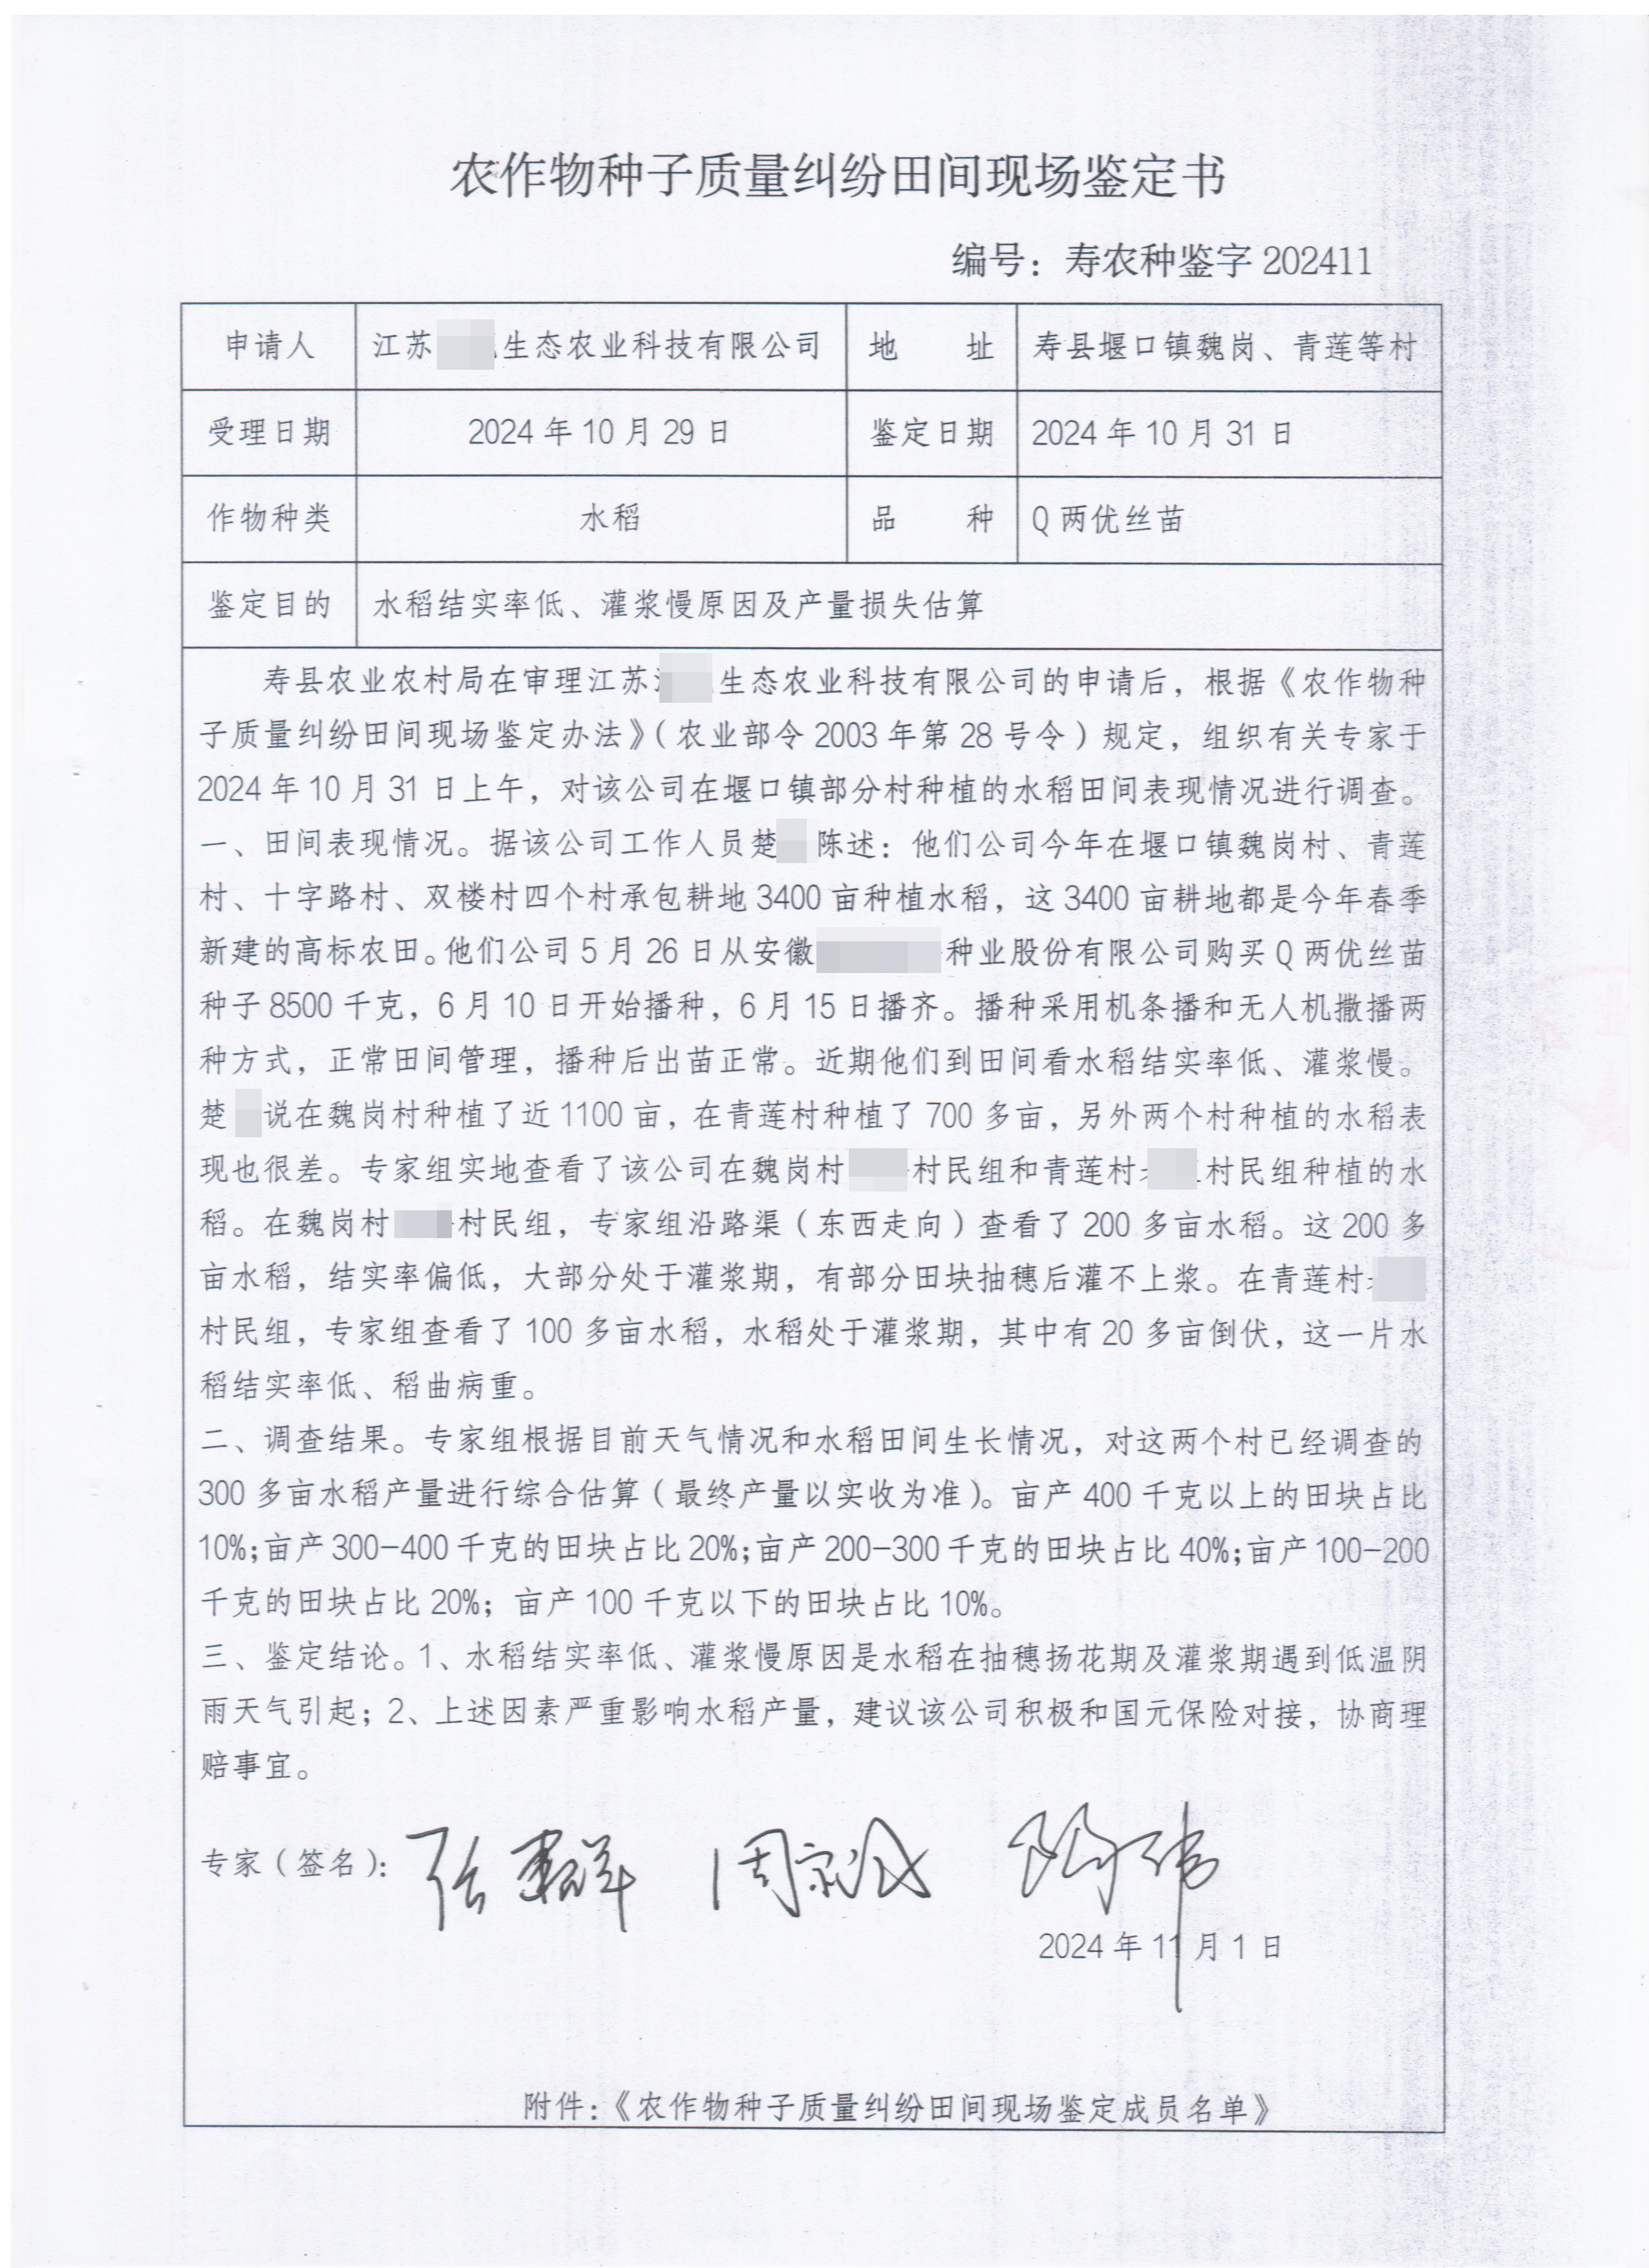 农作物种子质量纠纷田间现场鉴定书
编号：寿农种鉴字 202411
申请人 江苏 生态农业科技有限公司 地 址 寿县堰口镇魏岗、青莲等村
受理日期 2024 年 10 月 29 日 鉴定日期 2024 年 10 月 31 日
作物种类 水稻 品 种 Q 两优丝苗
鉴定目的 水稻结实率低、灌浆慢原因及产量损失估算
寿县农业农村局在审理江苏 生态农业科技有限公司的申请后，根据《农作物种
子质量纠纷田间现场鉴定办法》（农业部令 2003 年第 28 号令）规定，组织有关专家于
2024 年 10 月 31 日上午，对该公司在堰口镇部分村种植的水稻田间表现情况进行调查。
一、田间表现情况。据该公司工作人员楚 陈述：他们公司今年在堰口镇魏岗村、青莲
村、十字路村、双楼村四个村承包耕地 3400 亩种植水稻，这 3400 亩耕地都是今年春季
新建的高标农田。他们公司 5 月 26 日从安徽 种业股份有限公司购买 Q 两优丝苗
种子 8500 千克，6 月 10 日开始播种，6 月 15 日播齐。播种采用机条播和无人机撒播两
种方式，正常田间管理，播种后出苗正常。近期他们到田间看水稻结实率低、灌浆慢。
楚 说在魏岗村种植了近 1100 亩，在青莲村种植了 700 多亩，另外两个村种植的水稻表
现也很差。专家组实地查看了该公司在魏岗村 村民组和青莲村 村民组种植的水
稻。在魏岗村 村民组，专家组沿路渠（东西走向）查看了 200 多亩水稻。这 200 多
亩水稻，结实率偏低，大部分处于灌浆期，有部分田块抽穗后灌不上浆。在青莲村
村民组，专家组查看了 100 多亩水稻，水稻处于灌浆期，其中有 20 多亩倒伏，这一片水
稻结实率低、稻曲病重。
二、调查结果。专家组根据目前天气情况和水稻田间生长情况，对这两个村已经调查的
300 多亩水稻产量进行综合估算（最终产量以实收为准）。亩产 400 千克以上的田块占比
10%；亩产 300-400 千克的田块占比 20%；亩产 200-300 千克的田块占比 40%；亩产 100-200
千克的田块占比 20%；亩产 100 千克以下的田块占比 10%。
三、鉴定结论。1、水稻结实率低、灌浆慢原因是水稻在抽穗扬花期及灌浆期遇到低温阴
雨天气引起；2、上述因素严重影响水稻产量，建议该公司积极和国元保险对接，协商理
赔事宜。
专家（签名）：
2024 年 11 月 1 日
附件：《农作物种子质量纠纷田间现场鉴定成员名单》